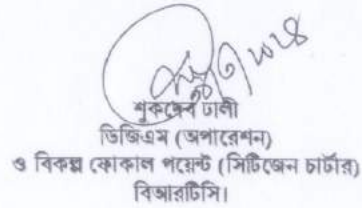 শুকদেব ঢালী
ডিজিএম (অপারেশন)
ও বিকল্প ফোকাল পয়েন্ট (সিটিজেন চার্টার)
বিআরটিসি।